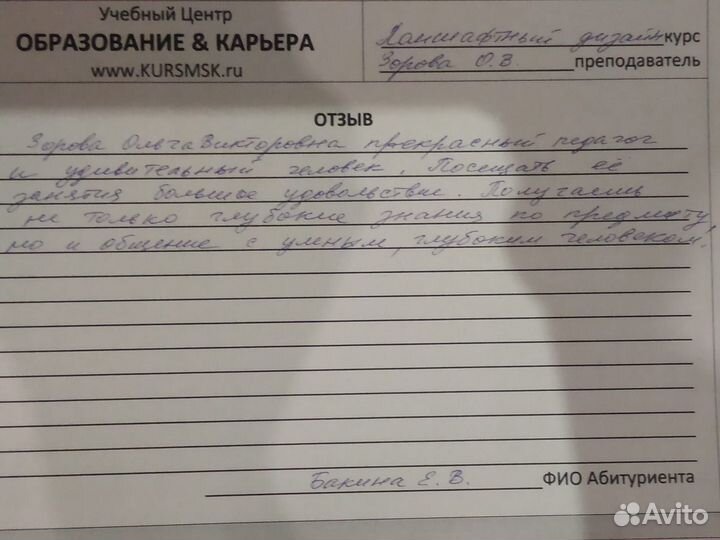 Учебный Центр
ОБРАЗОВАНИЕ & КАРЬЕРА
www.KURSMSK.ru
Ланшафтный дизайн курс
Зорова О.В. преподаватель
ОТЗЫВ
Зорова Ольга Викторовна прекрасный педагог
и удивительный человек. Посещать её
занятия большое удовольствие. Получаешь
не только глубокие знания по предмету,
но и общение с умным, глубоким человеком!
Бакина Е.В. ФИО Абитуриента
Avito